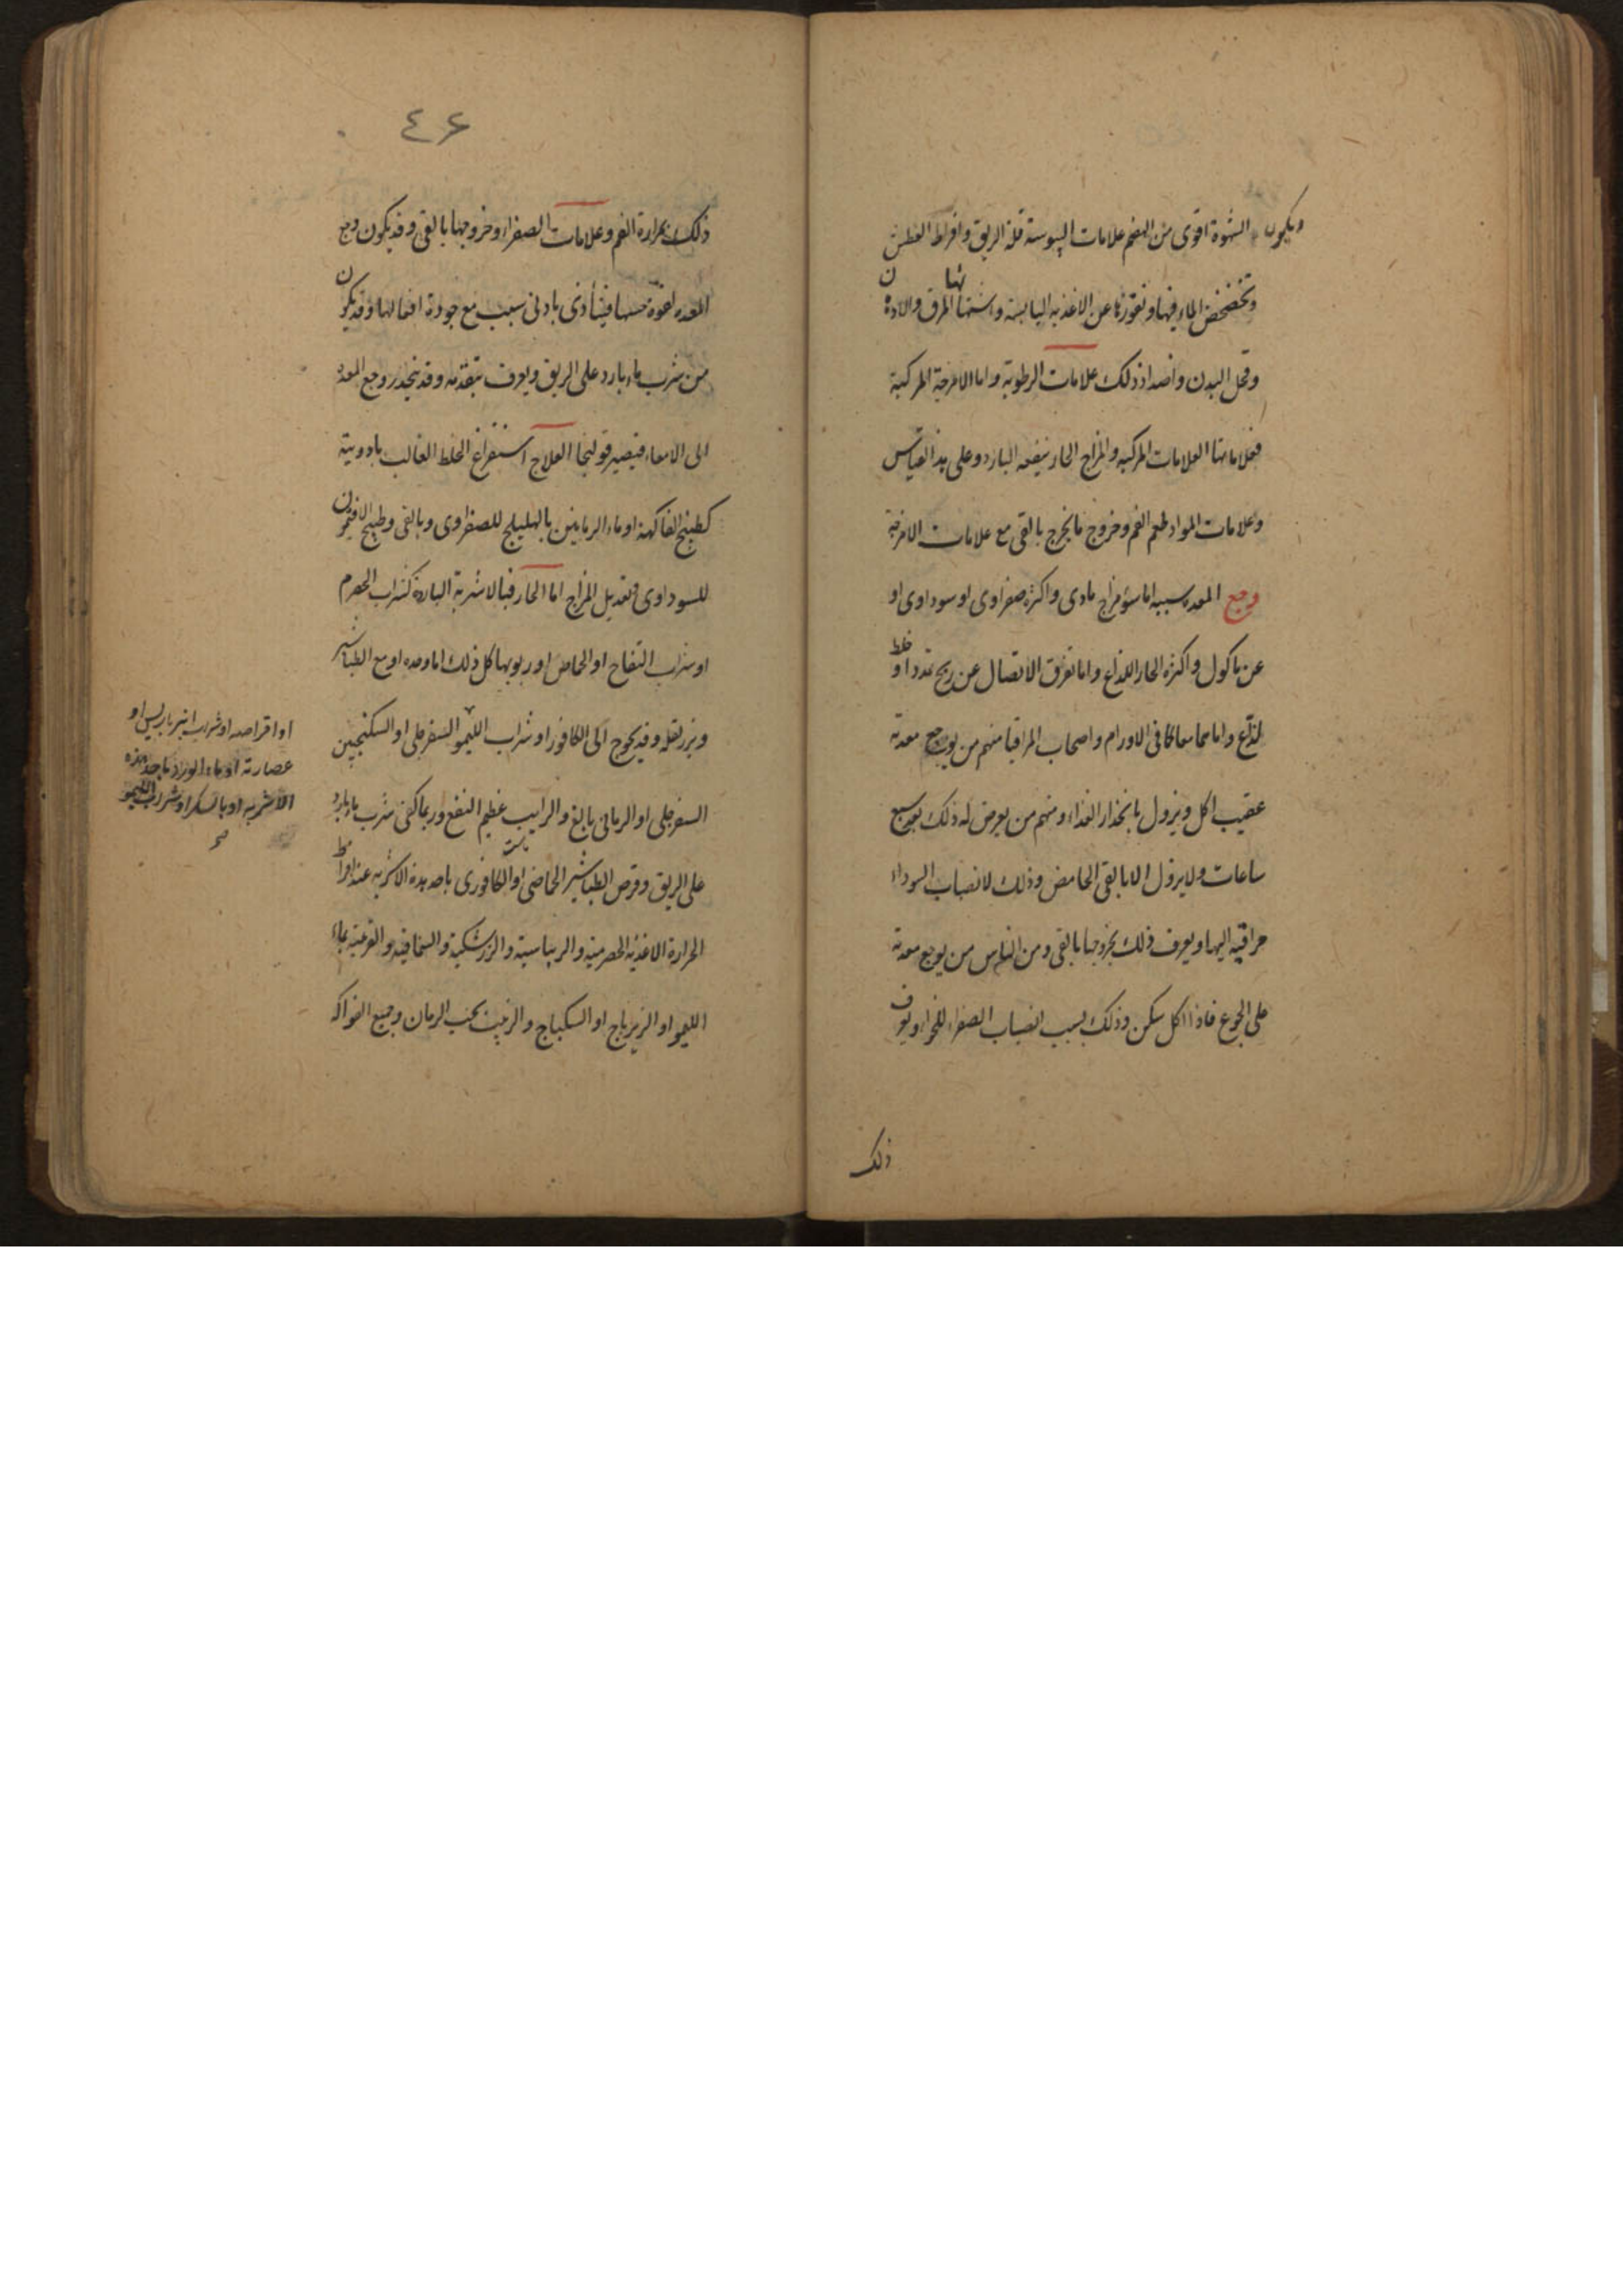 ويكون الشهوة اقوى من الهضم علامات اليبوسة قلة الريق وافراط العطش
وتخضخض الماء فيها ونفورها عن الاغذيه اليابسة واشتهائها المرق والادهان
وقحل البدن واضداد ذلك علامات الرطوبة واما الامزجة المركبة
فعلاماتها العلامات المركبه والمزاج الحار ينفعه البارد وعلى هذا القياس
وعلامات المواد طعم الفم وخروج ما يخرج بالقى مع علامات الامزجة
وجع المعده سببه اما سؤ مزاج مادى واكثره صفراوى او سوداوى او
عن ماكول واكثره الحار اللذاع واما تفرق الاتصال عن ريح تمدد او خلط
لذّاع واما هما معا كما فى الاورام واصحاب المراقيا منهم من يوجع معدته
عقيب اكل ويزول بانحدار الغذاء ومنهم من يعرض له ذلك بعد سبع
ساعات ولا يزول الا بالقى الحامض وذلك لانصباب السوداء
مراقيه اليها ويعرف ذلك بخروجها بالقى ومن الناس من يوجع معدته
على الجوع فاذا اكل سكن وذلك بسبب انصباب الصفراء للخواء ويعرف
ذلك
٤۶
ذلك بمرارة الفم وعلامات الصفراء وخروجها بالقى وقد يكون وجع
المعده لقوة حسها فيتأذى بادنى سبب مع جودة افعالها وقد يكون
من شرب ماء بارد على الريق ويعرف بتقدمه وقد ينحدر وجع المعدة
الى الامعاء فيصير قولنجا العلاج استفراغ الخلط الغالب بادويته
كطبيخ الفاكهة او ماء الرمانين بالهليلج للصفراوى وبالقى وطبيخ الافتيمون
للسوداوى وتعديل المزاج اما الحار فبالاشربة الباردة كشراب الحصرم
او شراب التفاح او الحماض او ربوبها كل ذلك اما وحده او مع الطباشير
وبزر بقله وقد يحوج الى الكافور او شراب الليمو السفرجلى او السكنجبين
السفرجلى او الرمانى بالغ والرايب عظيم النفع وربما كفى شرب ماء بارد
على الريق وقرص الطباشير الحماضى او الكافورى باحد هذه الاشربه عند افراط
الحرارة الاغذيه الحصرميه والريباسية والزرشكية والسماقيه والقرعيه بماء
الليمو او الزيرباج او السكباج والزبيب بحب الرمان وجميع الفواكه
او اقراصه او شراب انبرباريس او
عصارته او ماء الورد باحد هذه
الاشربه او بالسكر او شراب الليمو
صح